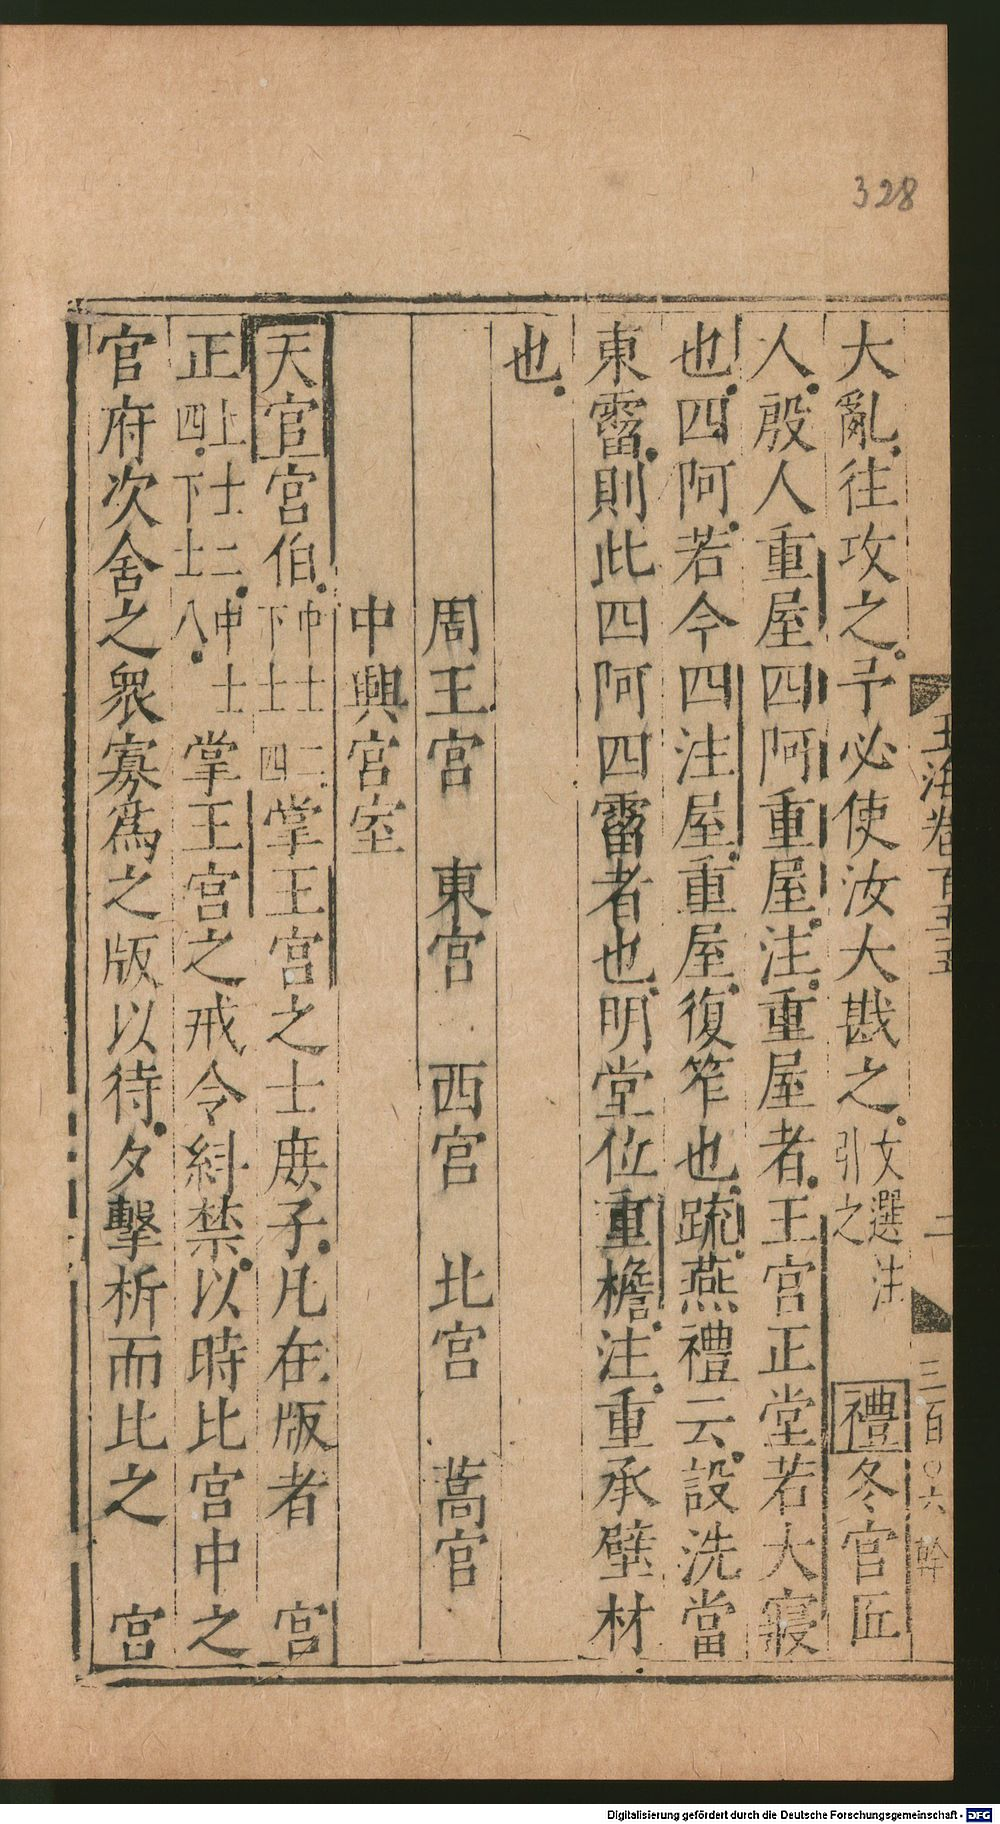 328
大亂往攻之予必使汝大戡之文選注引之 禮冬官匠
人殷人重屋四阿重屋注重屋者王宮正堂若大寢
也四阿若今四注屋重屋復笮也疏燕禮云設洗當
東霤則此四阿四霤者也明堂位重檐注重承壁材
也
周王宮 東宮 西宮 北宮 蒿宮
中興宮室
天官宮伯中士二下士四掌王宮之士庶子凡在版者 宮
正上士二中士四下士八掌王宮之戒令糾禁以時比宮中之
官府次舍之衆寡爲之版以待夕擊柝而比之 宮
玉海卷百五十五 二 三百〇六 幹
Digitalisierung gefördert durch die Deutsche Forschungsgemeinschaft - DFG